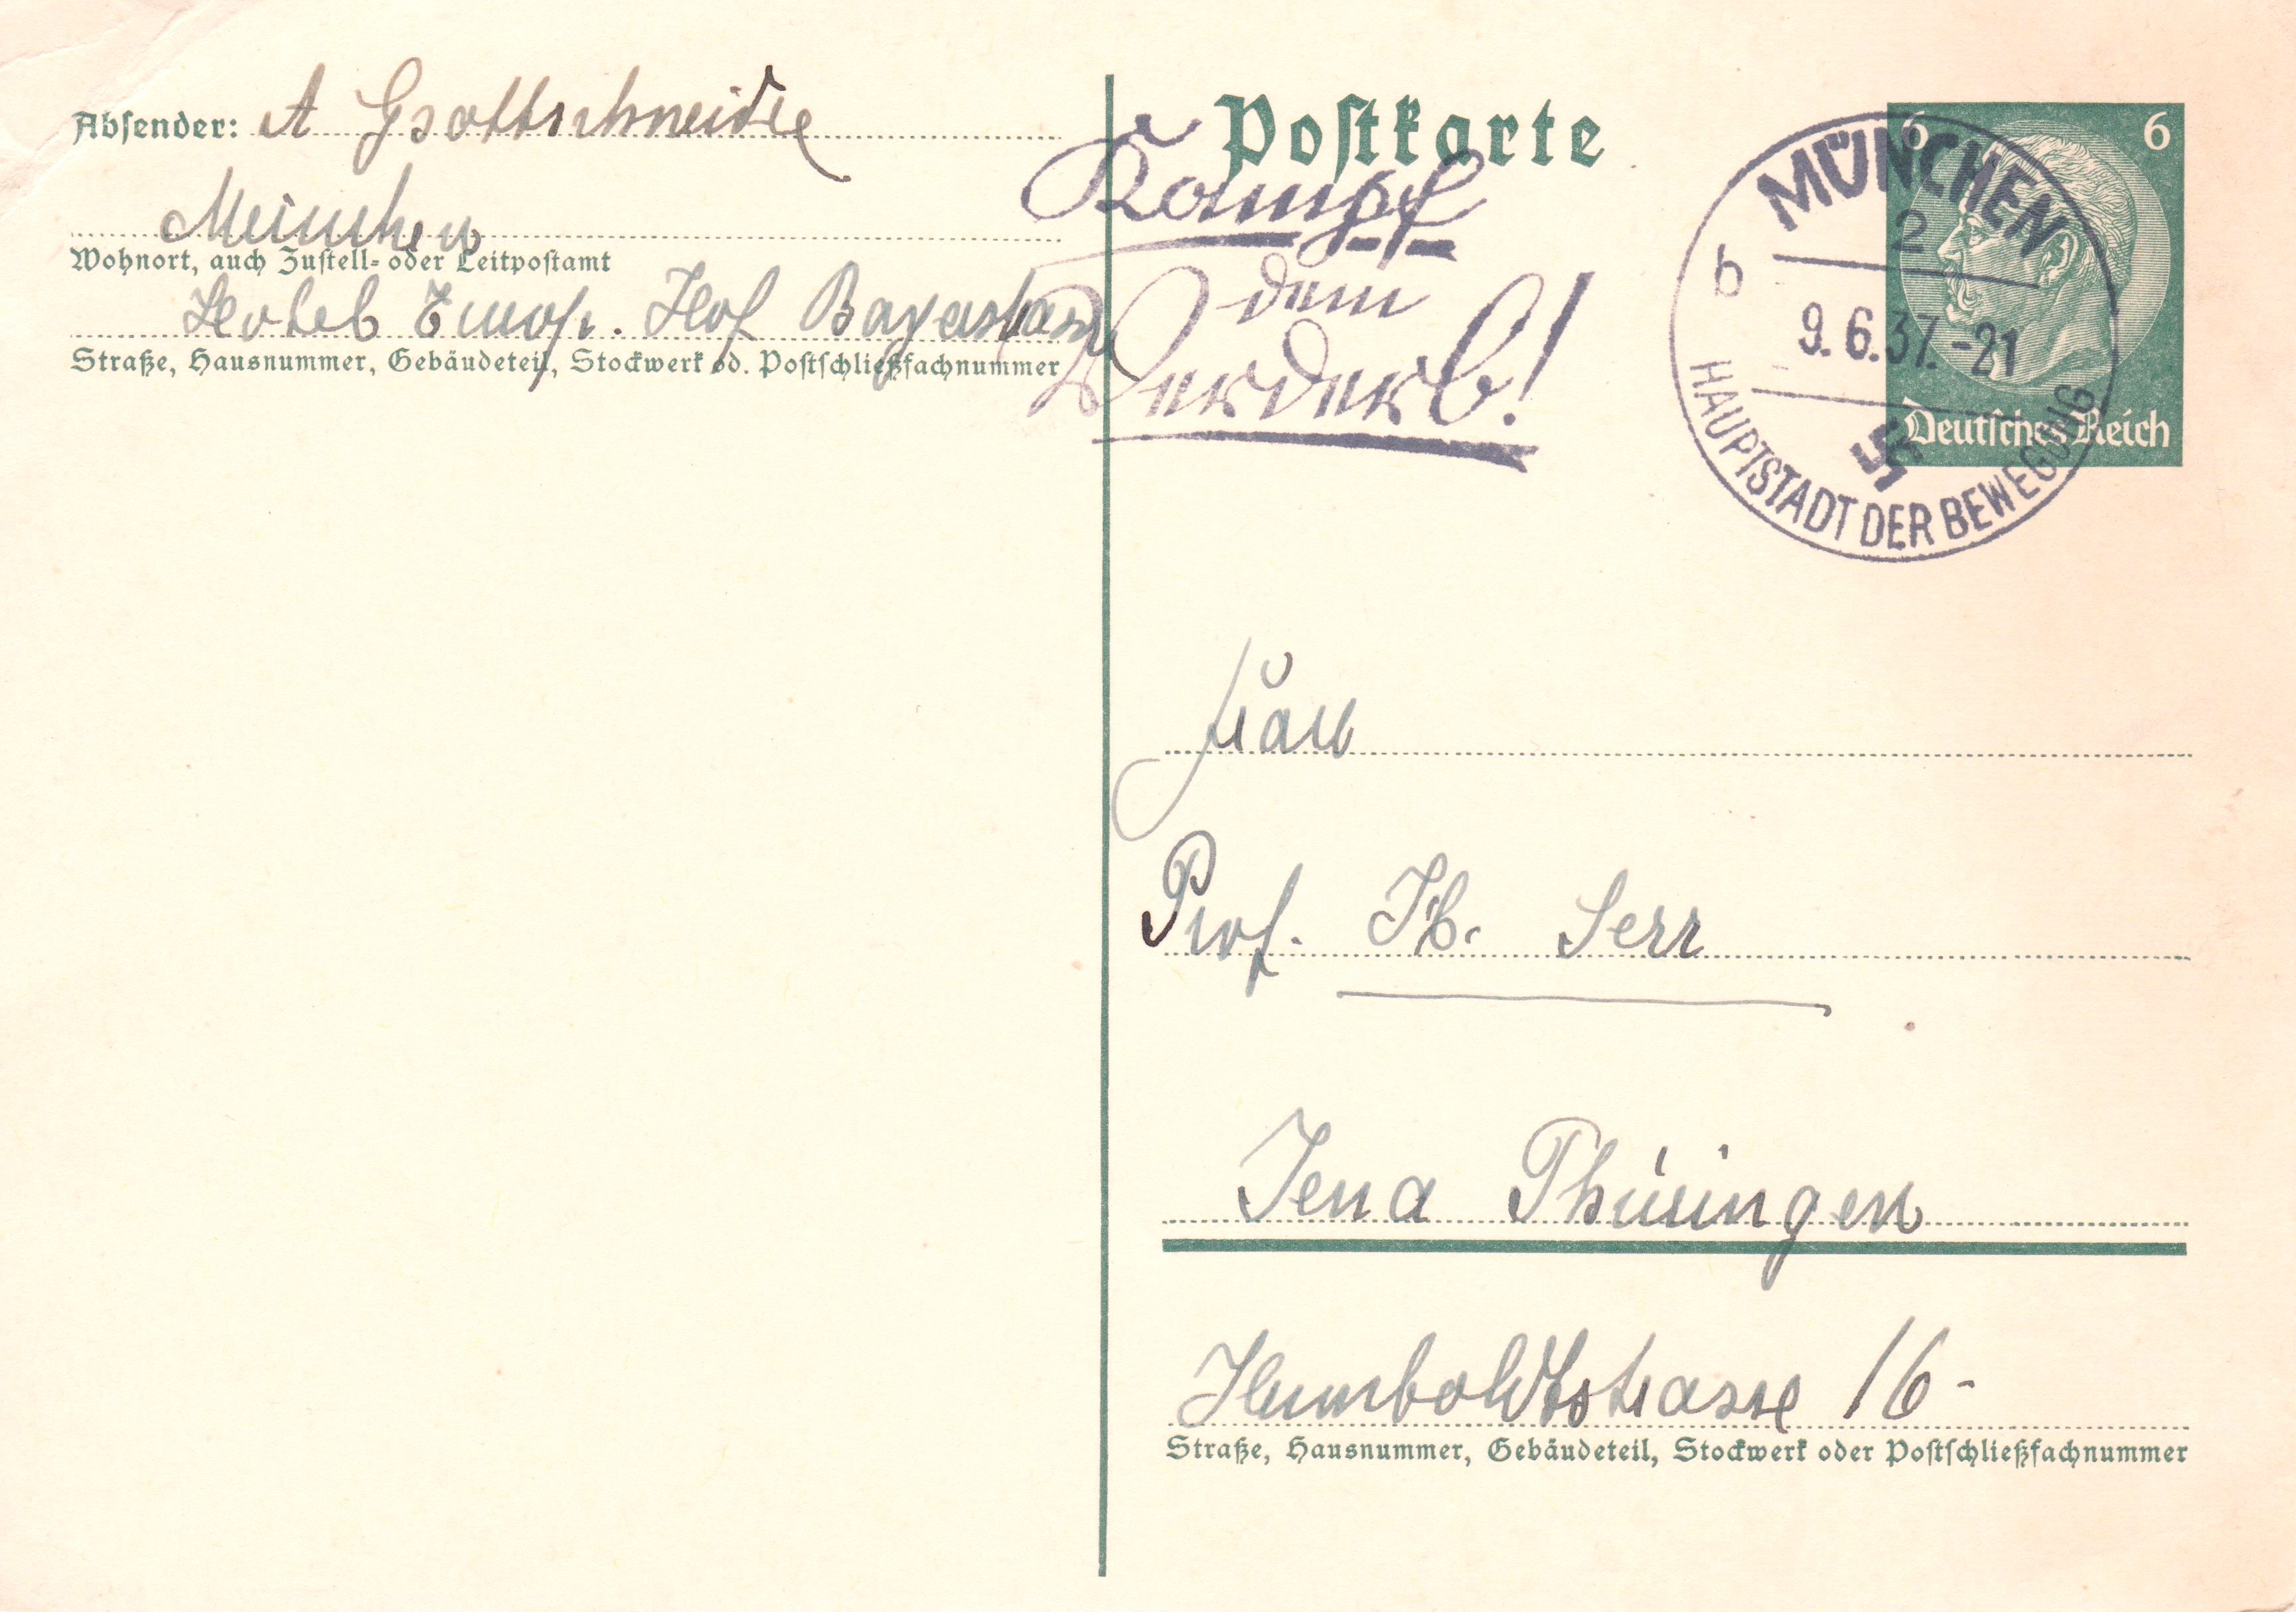 Absender: A Gsottschneider
München
Wohnort, auch Zustell- oder Leitpostamt
Hotel Europ. Hof Bayerstrasse
Straße, Hausnummer, Gebäudeteil, Stockwerk od. Postschließfachnummer
Postkarte
Kampf
dem
Verderb!
MÜNCHEN
2
b
9.6.37.-21
HAUPTSTADT DER BEWEGUNG
6 6
Deutsches Reich
Frau
Prof. Serr
Jena Thüringen
Humboldtstrasse 16-
Straße, Hausnummer, Gebäudeteil, Stockwerk oder Postschließfachnummer